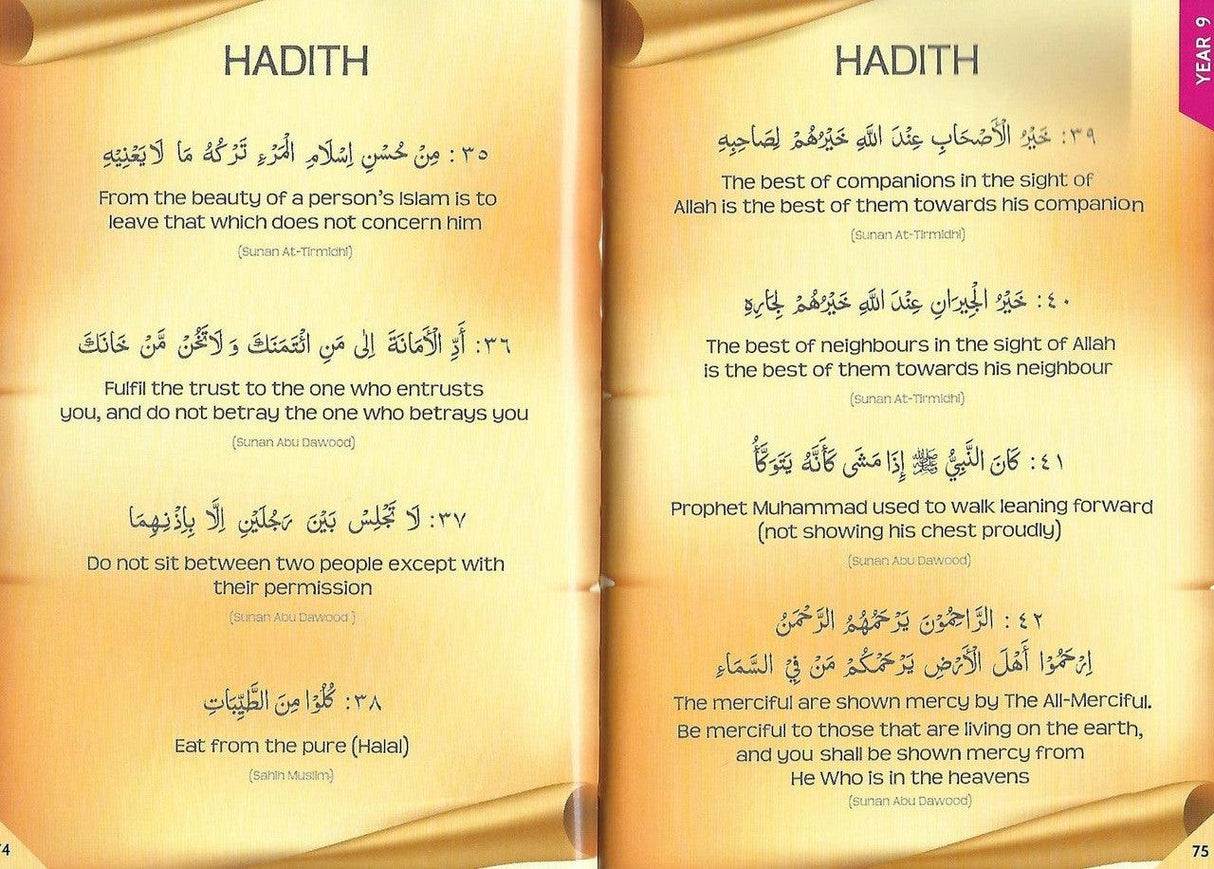 HADITH
٣٥: مِنْ حُسْنِ اِسْلَامِ الْمَرْءِ تَرْكُهُ مَا لَا يَعْنِيْهِ
From the beauty of a person's Islam is to
leave that which does not concern him
(Sunan At-Tirmidhi)
٣٦: أَدِّ الْأَمَانَةَ اِلٰى مَنِ ائْتَمَنَكَ وَلَا تَخُنْ مَّنْ خَانَكَ
Fulfil the trust to the one who entrusts
you, and do not betray the one who betrays you
(Sunan Abu Dawood)
٣٧: لَا تَجْلِسْ بَيْنَ رَجُلَيْنِ اِلَّا بِاِذْنِهِمَا
Do not sit between two people except with
their permission
(Sunan Abu Dawood )
٣٨: كُلُوْا مِنَ الطَّيِّبَاتِ
Eat from the pure (Halal)
(Sahih Muslim)
HADITH
YEAR 9
٣٩: خَيْرُ الْأَصْحَابِ عِنْدَ اللهِ خَيْرُهُمْ لِصَاحِبِهِ
The best of companions in the sight of
Allah is the best of them towards his companion
(Sunan At-Tirmidhi)
٤٠: خَيْرُ الْجِيرَانِ عِنْدَ اللهِ خَيْرُهُمْ لِجَارِهِ
The best of neighbours in the sight of Allah
is the best of them towards his neighbour
(Sunan At-Tirmidhi)
٤١: كَانَ النَّبِيُّ ﷺ إِذَا مَشَى كَأَنَّهُ يَتَوَكَّأُ
Prophet Muhammad used to walk leaning forward
(not showing his chest proudly)
(Sunan Abu Dawood)
٤٢: الرَّاحِمُوْنَ يَرْحَمُهُمُ الرَّحْمٰنُ
اِرْحَمُوْا أَهْلَ الْأَرْضِ يَرْحَمْكُمْ مَنْ فِيْ السَّمَاءِ
The merciful are shown mercy by The All-Merciful.
Be merciful to those that are living on the earth,
and you shall be shown mercy from
He Who is in the heavens
(Sunan Abu Dawood)
75